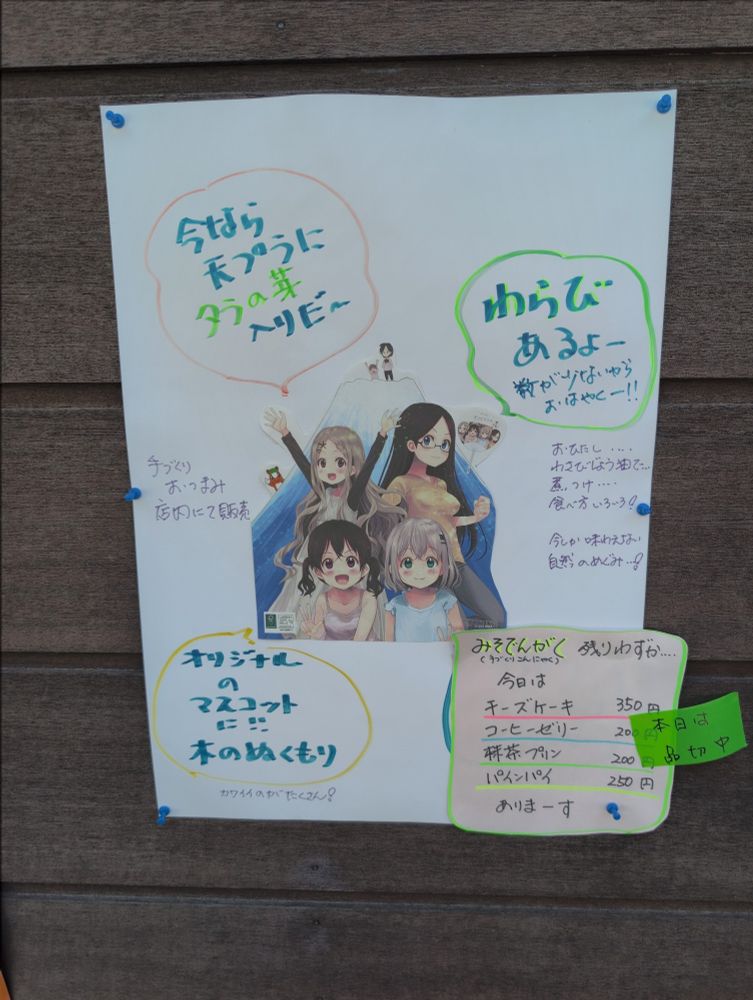 今なら
天プラに
タラの芽
入りだ〜
わらび
あるよー
数が少ないから
おはやくー!!
手づくり
おつまみ
店内にて販売
おひたし....
わさびじょう油で...
煮つけ....
食べ方いろいろ!
今しか味わえない
自然のめぐみ...!
オリジナル
の
マスコット
に!!
木のぬくもり
カワイイのがたくさん!
みそでんがく 残りわずか....
(手づくりこんにゃく)
今日は
チーズケーキ 350円
コーヒーゼリー 200円
抹茶プリン 200円
パインパイ 250円
ありまーす
本日は
品切中